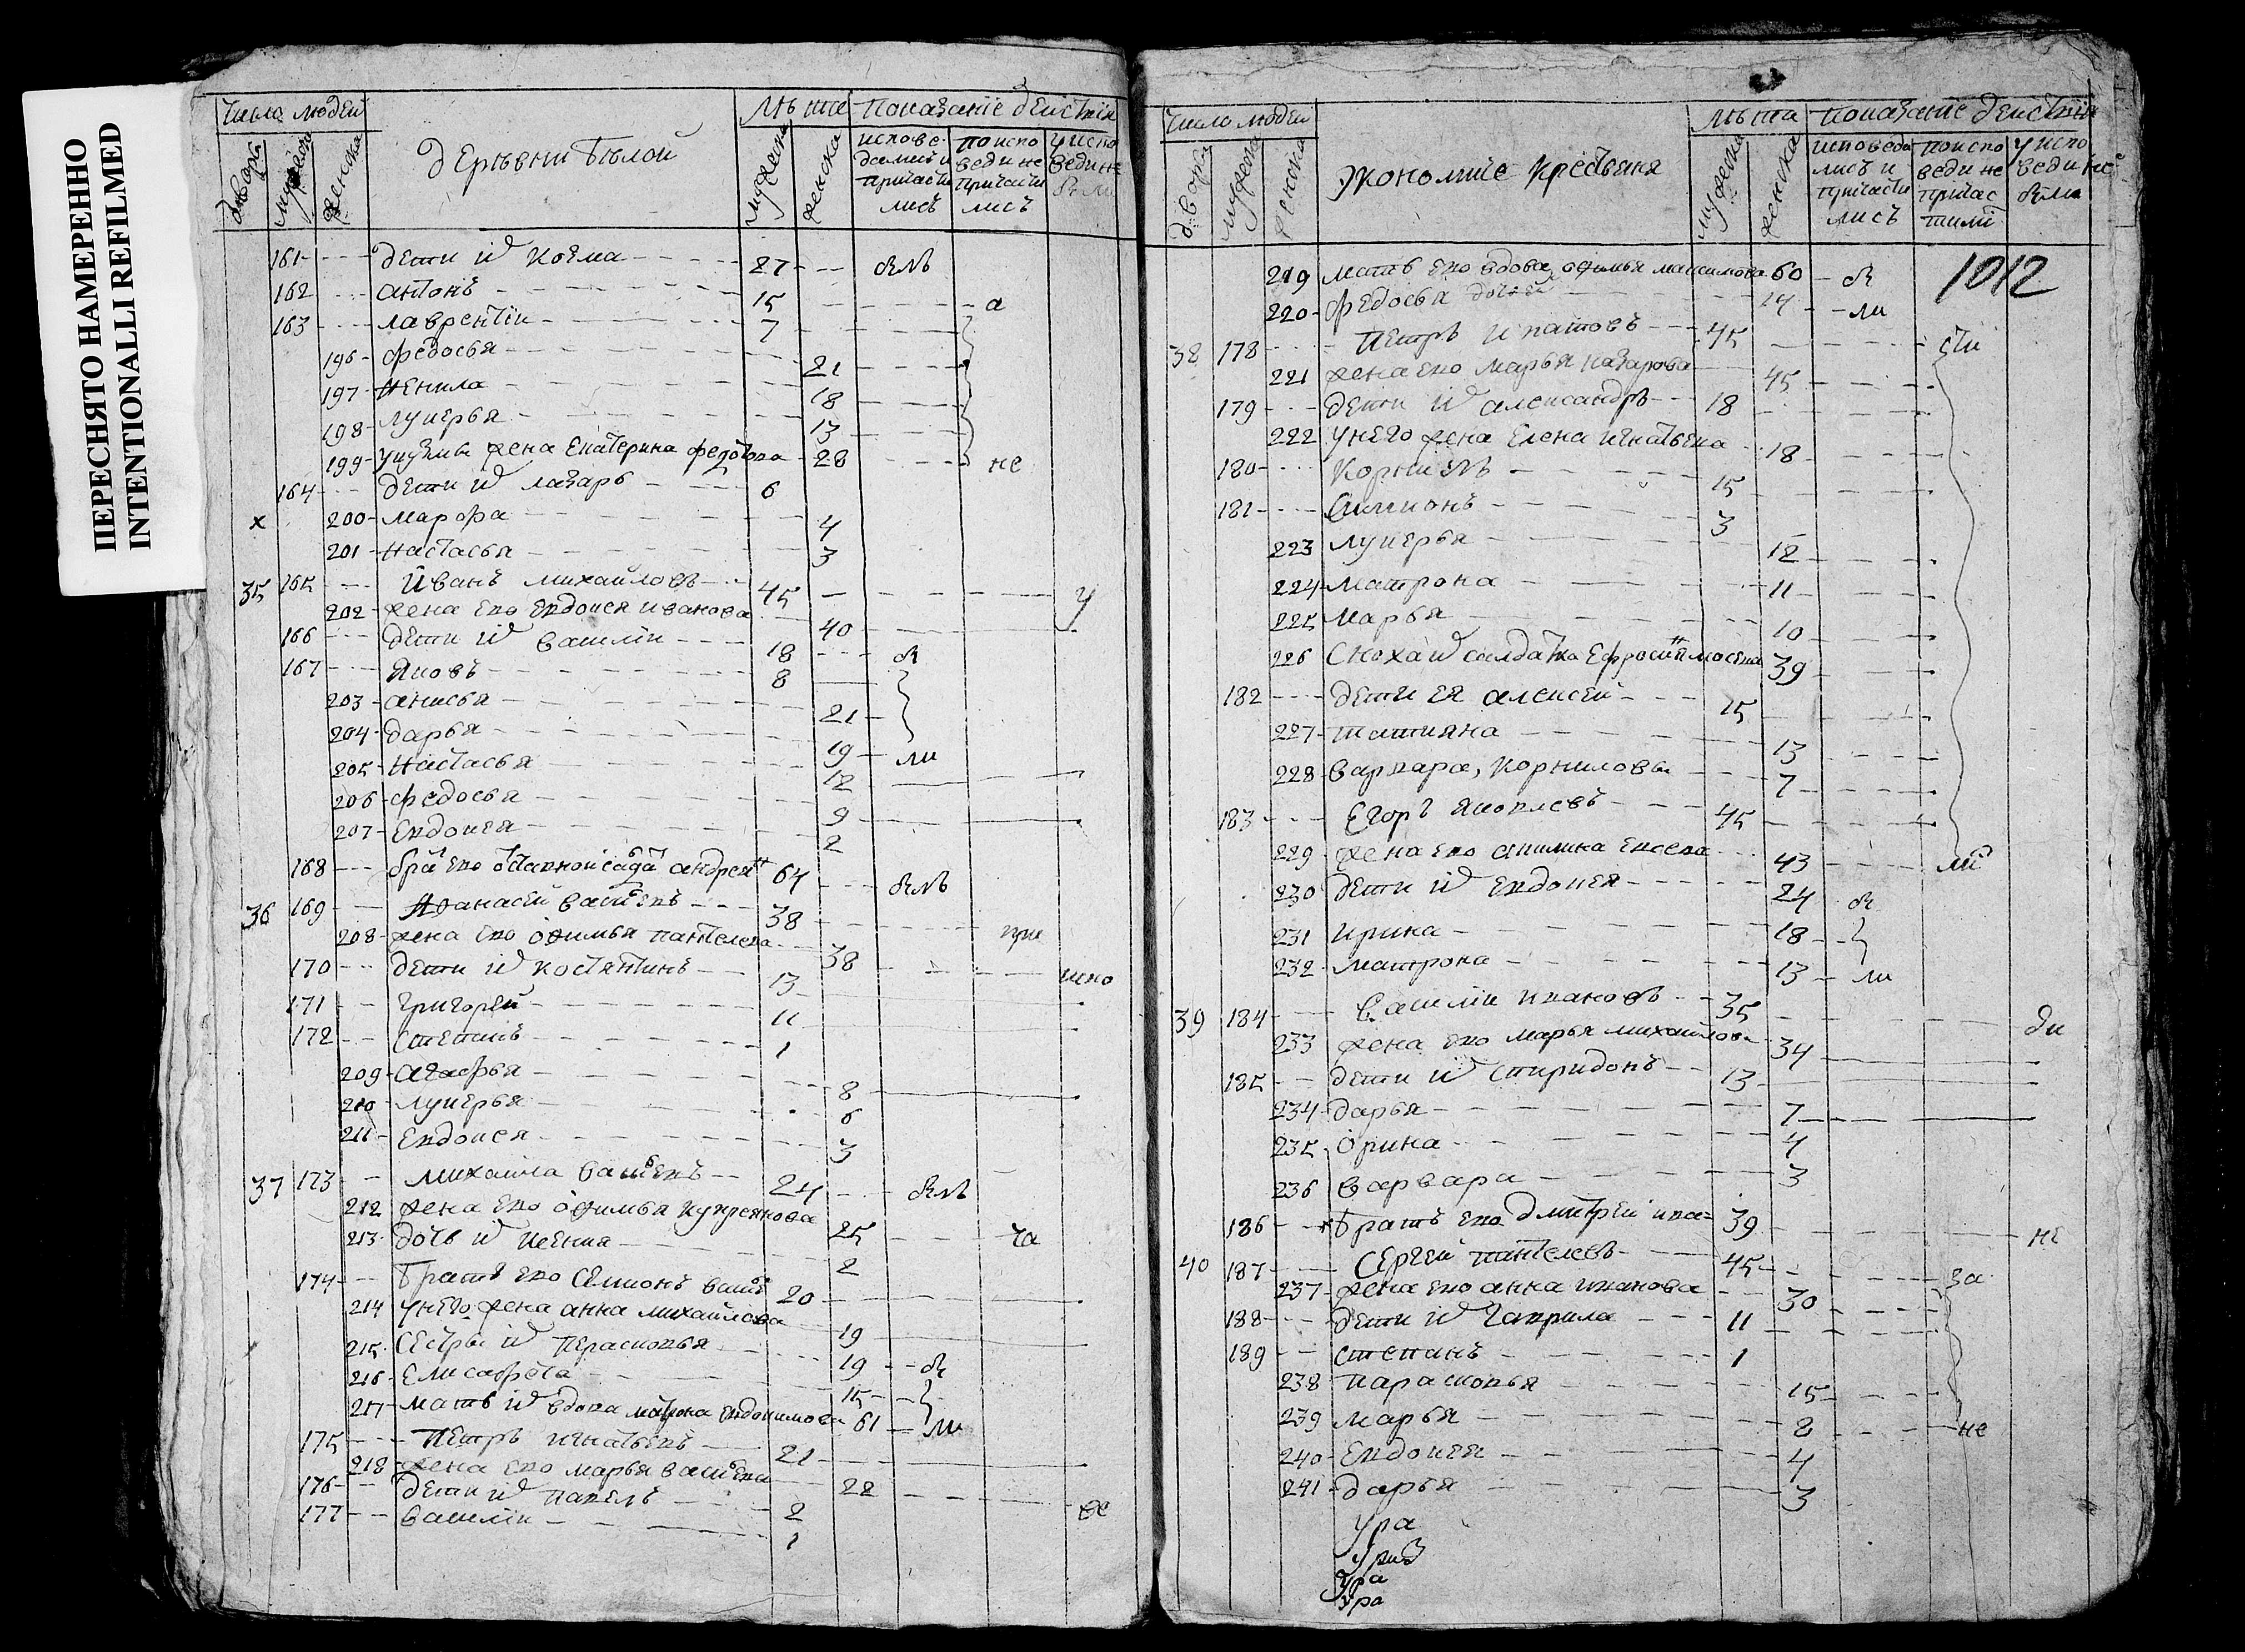 ПЕРЕСНЯТО НАМЕРЕННО
INTENTIONALLI REFILMED
Число людей
Лѣта
Показанїе дѣиствія
двары
мужеска
женска
дерѣвни бѣлой
мужеска
женска
испове
дались и
причасти
лись
по испо
веди не
причасти
лись
у испо
веди не
были
161 дети их козма 27 былъ
162 антонъ 15 а
163 лаврентїи 7
196 федосья 21
197 Ненила 18
198 лукерья 13
199 у кузмы жена Екатерина федотова 28 не
164 дети их лазарь 6
х 200 марфа 4
201 настасья 3
35 165 Иванъ михайловъ 45 у
202 жена ево Евдокея иванова 40
166 дети их василїи 18 бы
167 Яковъ 8
203 анисья 21
204 дарья 19 ли
205 настасья 12
206 федосья 9
207 Евдокея 2
168 брат ево отставной салдат андрей 64 былъ
36 169 Афанасей васильевъ 38
208 жена ево офимья пантелева 38 при
170 дети их костянтинъ 13
171 григорей 11
172 степанъ 1
209 агафья 8
210 лукерья 6
211 Евдокея 3
37 173 михаила васильевъ 24 былъ
212 жена ево офимья купреянова 25
213 дочь их Ксения 2 ча
174 братъ ево Семионъ васильевъ 20
214 у него жена анна михайлова 19
215 Сестры их Парасковья 19 бы
216 Елисафета 15
217 мать их вдова матрона Евдокимова 61 ли
175 Петръ игнатьевъ 21
218 жена ево марья васильева 22
176 дети их павелъ 2
177 василїи 1
Число людей
Лѣта
Показанїе дѣистия
двары
мужеска
женска
экономические крестьяня
мужеска
женска
исповеда
лись и
причасти
лись
по испо
веди не
причас
тили
у испо
веди не
были
1012
219 мать ево вдова офимья максимова 60 бы
220 федосья дочь ей 14 ли
38 178 Петръ Ипатовъ 45 сти
221 жена ево марья назарова 45
179 дети их александръ 18
222 у него жена Елена игнатьева 18
180 Корнилъ 15
181 Симионъ 3
223 лукерья 12
224 матрона 11
225 марья 10
226 Сноха их салдатка Ефросинья 39
182 дети ея алексей 15
227 татияна 13
228 варвара, корниловы 7
183 Егоръ яковлевъ 45
229 жена ево акилина 43 ли
230 дети их евдокея 24 бы
231 ирина 18
232 матрона 13 ли
39 184 василїи ивановъ 35
233 жена ево марья михайлова 34
185 дети их спиридонъ 13
234 дарья 7
235 орина 4
236 варвара 3
186 братъ ево дмитрей ива 39 не
40 187 Сергей пантелевъ 45 за
237 жена ево анна иванова 30
188 дети их гаврила 11
189 степанъ 1
238 парасковья 15
239 марья 8 не
240 евдокея 4
241 дарья 3
ура
ура
ура